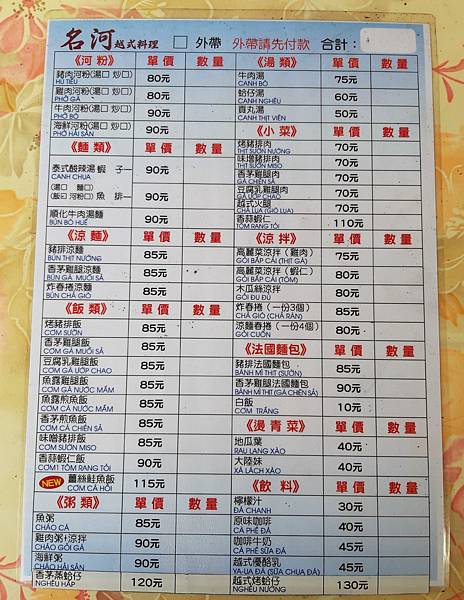 名河越式料理 □ 外帶 外帶請先付款 合計：
《河 粉》 單 價 數 量
豬肉河粉(湯□ 炒□) 80元
HỦ TIẾU
雞肉河粉(湯□ 炒□) 80元
PHỞ GÀ
牛肉河粉(湯□ 炒□) 90元
PHỞ BÒ
海鮮河粉(湯□ 炒□) 90元
PHỞ HẢI SẢN
《麵 類》 單 價 數 量
泰式酸辣湯 蝦 子 90元
CANH CHUA
(湯□ 麵□)
(飯□ 河粉□) 魚 排 90元
順化牛肉湯麵 90元
BÚN BÒ HUẾ
《涼 麵》 單 價 數 量
豬排涼麵 85元
BÚN THỊT NƯỚNG
香茅雞腿涼麵 85元
BÚN GÀ MUỐI SẢ
炸春捲涼麵 85元
BÚN CHẢ GIÒ
《飯 類》 單 價 數 量
烤豬排飯 85元
CƠM SƯỜN
香茅雞腿飯 85元
CƠM GÀ MUỐI SẢ
豆腐乳雞腿飯 85元
CƠM GÀ ƯỚP CHAO
魚露雞腿飯 85元
CƠM GÀ NƯỚC MẮM
魚露煎魚飯 85元
CƠM CÁ NƯỚC MẮM
香茅煎魚飯 85元
CƠM CÁ CHIÊN SẢ
味噌豬排飯 85元
CƠM SƯỜN MISO
香蒜蝦仁飯 90元
CƠM TÔM RANG TỎI
NEW 薑絲鮭魚飯 115元
CƠM CÁ HỒI
《粥 類》 單 價 數 量
魚粥 85元
CHÁO CÁ
雞肉粥+涼拌 90元
CHÁO GỎI GÀ
海鮮粥 90元
CHÁO HẢI SẢN
香茅蒸蛤仔 120元
NGHÊU HẤP
《湯 類》 單 價 數 量
牛肉湯 75元
CANH BÒ
蛤仔湯 60元
CANH NGHÊU
貢丸湯 50元
CANH THỊT VIÊN
《小 菜》 單 價 數 量
烤豬排肉 70元
THỊT SƯỜN NƯỚNG
味噌豬排肉 70元
THỊT SƯỜN MISO
香茅雞腿肉 70元
GÀ CHIÊN SẢ
豆腐乳雞腿肉 70元
GÀ ƯỚP CHAO
越式火腿 70元
CHẢ LỤA (GIÒ LỤA)
香蒜蝦仁 110元
TÔM RANG TỎI
《涼 拌》 單 價 數 量
高麗菜涼拌（雞肉） 75元
GỎI BẮP CẢI (THỊT GÀ)
高麗菜涼拌（蝦仁） 80元
GỎI BẮP CẢI (TÔM)
木瓜絲涼拌 80元
GỎI ĐU ĐỦ
炸春捲（一份3個） 85元
CHẢ GIÒ (CHẢ RÁN)
涼麵春捲（一份4個） 80元
GỎI CUỐN
《法國麵包》 單 價 數 量
豬排法國麵包 85元
BÁNH MÌ THỊT (SƯỜN)
香茅雞腿法國麵包 90元
BÁNH MÌ THỊT (GÀ CHIÊN SẢ)
白飯 10元
CƠM TRẮNG
《燙 青 菜》 單 價 數 量
地瓜葉 40元
RAU LANG XÀO
大陸妹 40元
XÀ LÁCH XÀO
《飲 料》 單 價 數 量
檸檬汁 30元
ĐÁ CHANH
原味咖啡 40元
CÀ PHÊ ĐÁ
咖啡牛奶 45元
CÀ PHÊ SỮA ĐÁ
越式優酪乳 45元
YA-UA ĐÁ (SỮA CHUA ĐÁ)
越式烤蛤仔 130元
NGHÊU NƯỚNG